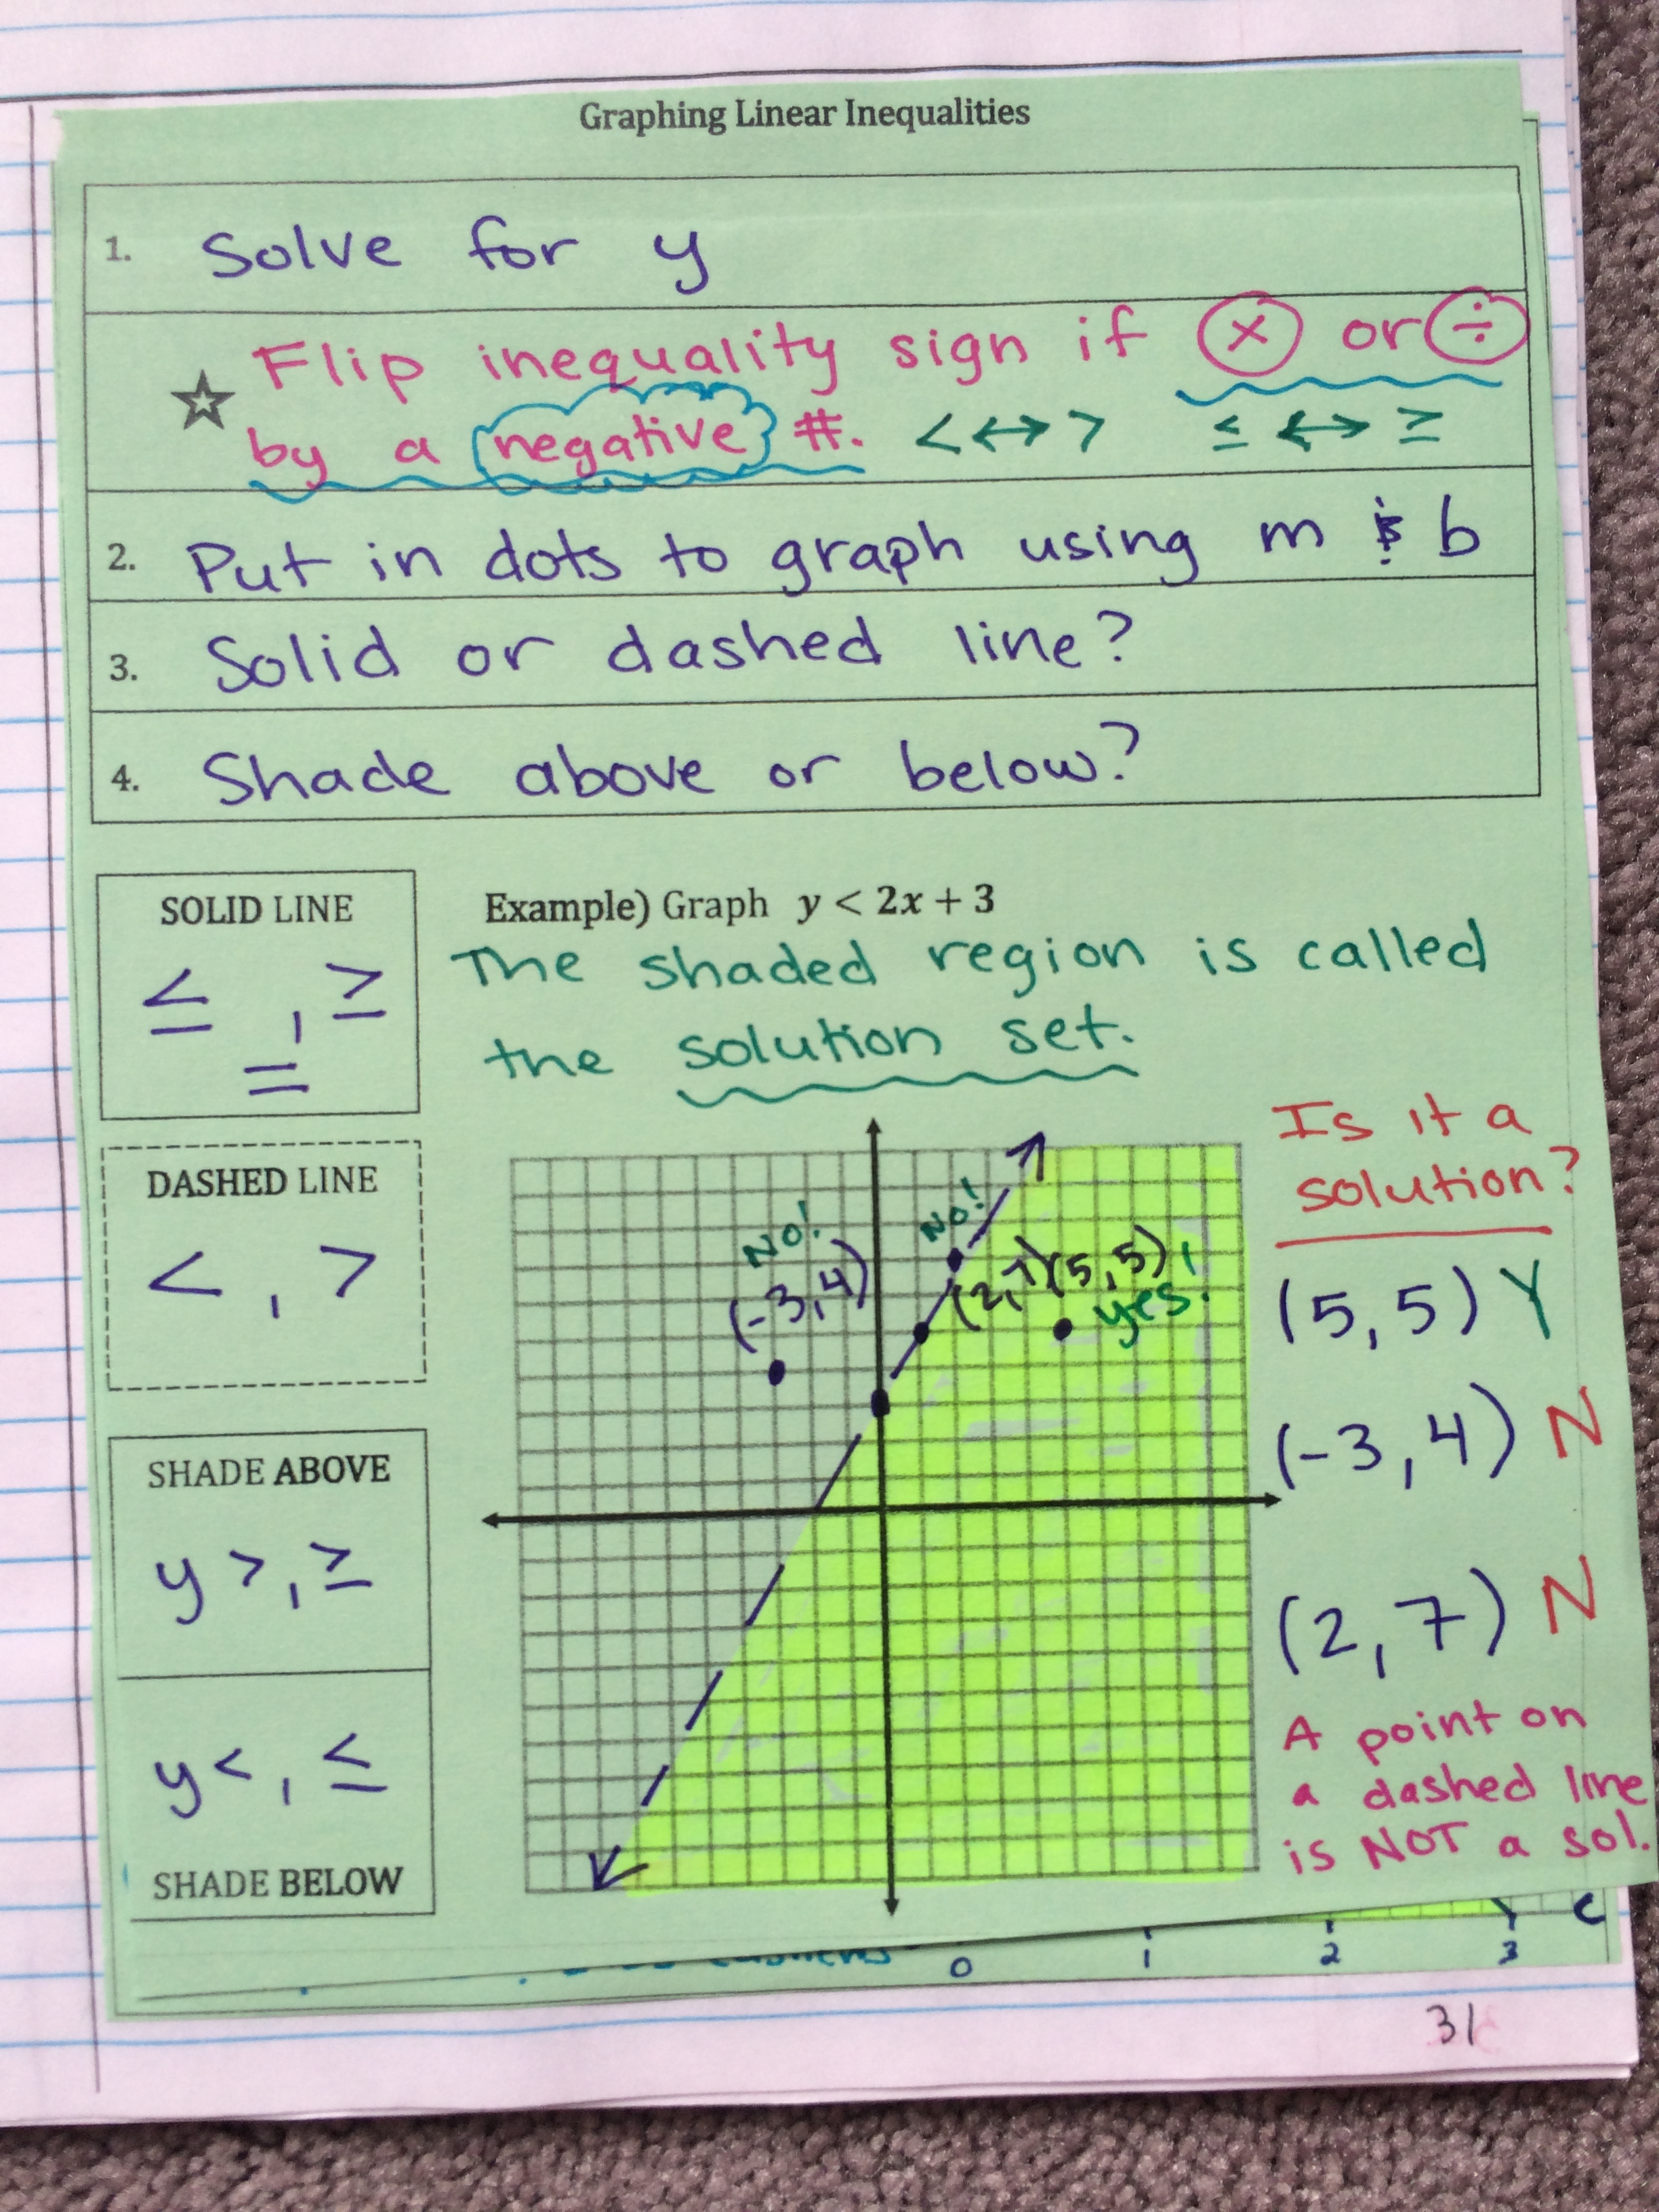 Graphing Linear Inequalities
1. Solve for y
☆ Flip inequality sign if ⊗ or ÷
by a negative #. < ↔ > ≤ ↔ ≥
2. Put in dots to graph using m & b
3. Solid or dashed line?
4. Shade above or below?
SOLID LINE
≤ , ≥
=
DASHED LINE
< , >
SHADE ABOVE
y > , ≥
y < , ≤
SHADE BELOW
Example) Graph y < 2x + 3
The shaded region is called
the solution set.
NO!
(-3,4)
NO!
(2,7)
(5,5)
yes!
Is it a
solution?
(5,5) Y
(-3,4) N
(2,7) N
A point on
a dashed line
is NOT a sol.
0 1 2 3 C
31